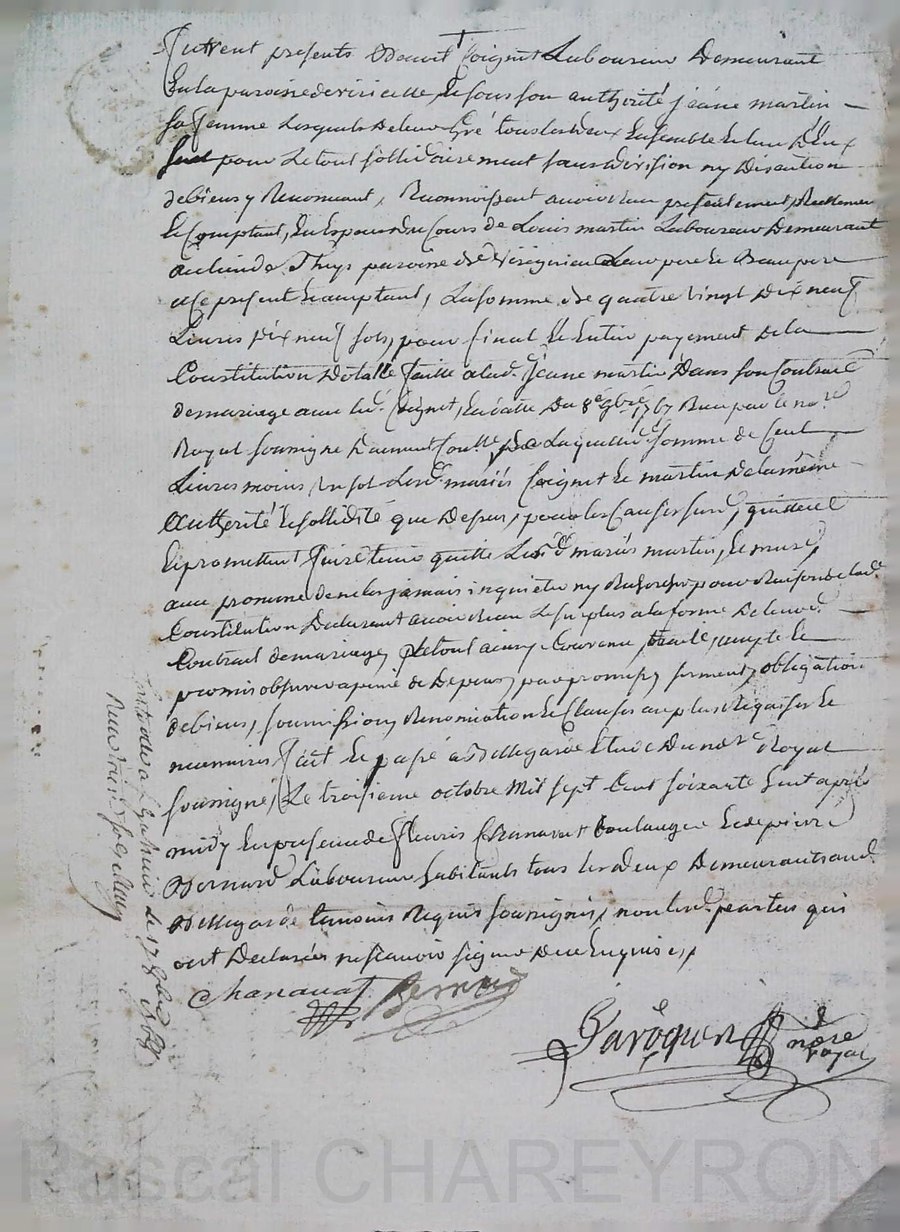 furent presents Benoit Coignet Laboureur Demeurant
En la paroisse de viricelle, Et sous son authorité jeane martin
sa femme Lesquels de leur Gré tous les deux Ensemble Et lun D'Eux
seul pour Le tout sollidairement sans division ny Discution
de biens y Renonceant, Reconnoissent avoir Recu presentement, Reellement
Et Comptant, En Especes du Cours de Louis martin Laboureur Demeurant
au lieu de Thuys paroisse de Leur pere Et Beaupere
a Ce present Et acceptant, La somme de quatre vingt Dix neuf
Livres Dix neuf sols, pour final Et Entier payement de la
Constitution Dotalle faitte a lad. jeane martin Dans son Contract
de mariage avec led. Coignet, En datte Du 8e 1767 Recu par le nore
Royal soussigne de Laquelle somme de Cent
Livres moins un sol Lesd. mariés Coignet Et martin de la même
authorité Et sollidité que Dessus, pour les Causes susd, quittent
Et promettent faire tenir quitte Led. martin,
avec promesse de ne les jamais inquieter ny Rechercher pour Raison de lad.
Constitution Declarant avoir Recu Le surplus a la forme De leurd.
Contract de mariage, Le tout ainsy Convenu, accepté Et
promis observer a peine de Depens, par promesse, serment, obligation
de biens, soumissions, Renonciation Et Clauses au plus Requises Et
necessaires fait Et passé à Bellegarde Etude Du nore Royal
soussigne, Le troisieme octobre Mil sept Cent soixante apres
midy En presence de fleuris Chanavat boulanger Et de pierre
Bernard Laboureur habitants tous les deux Demeurants aud.
Bellegarde temoins Requis soussignés, non lesd. parties qui
ont Declarées ne scavoir signer De ce Enquises,
Chanavat Bernard
nore
royal
Controllé a le 17 8bre
Recu sols
Pascal CHAREYRON